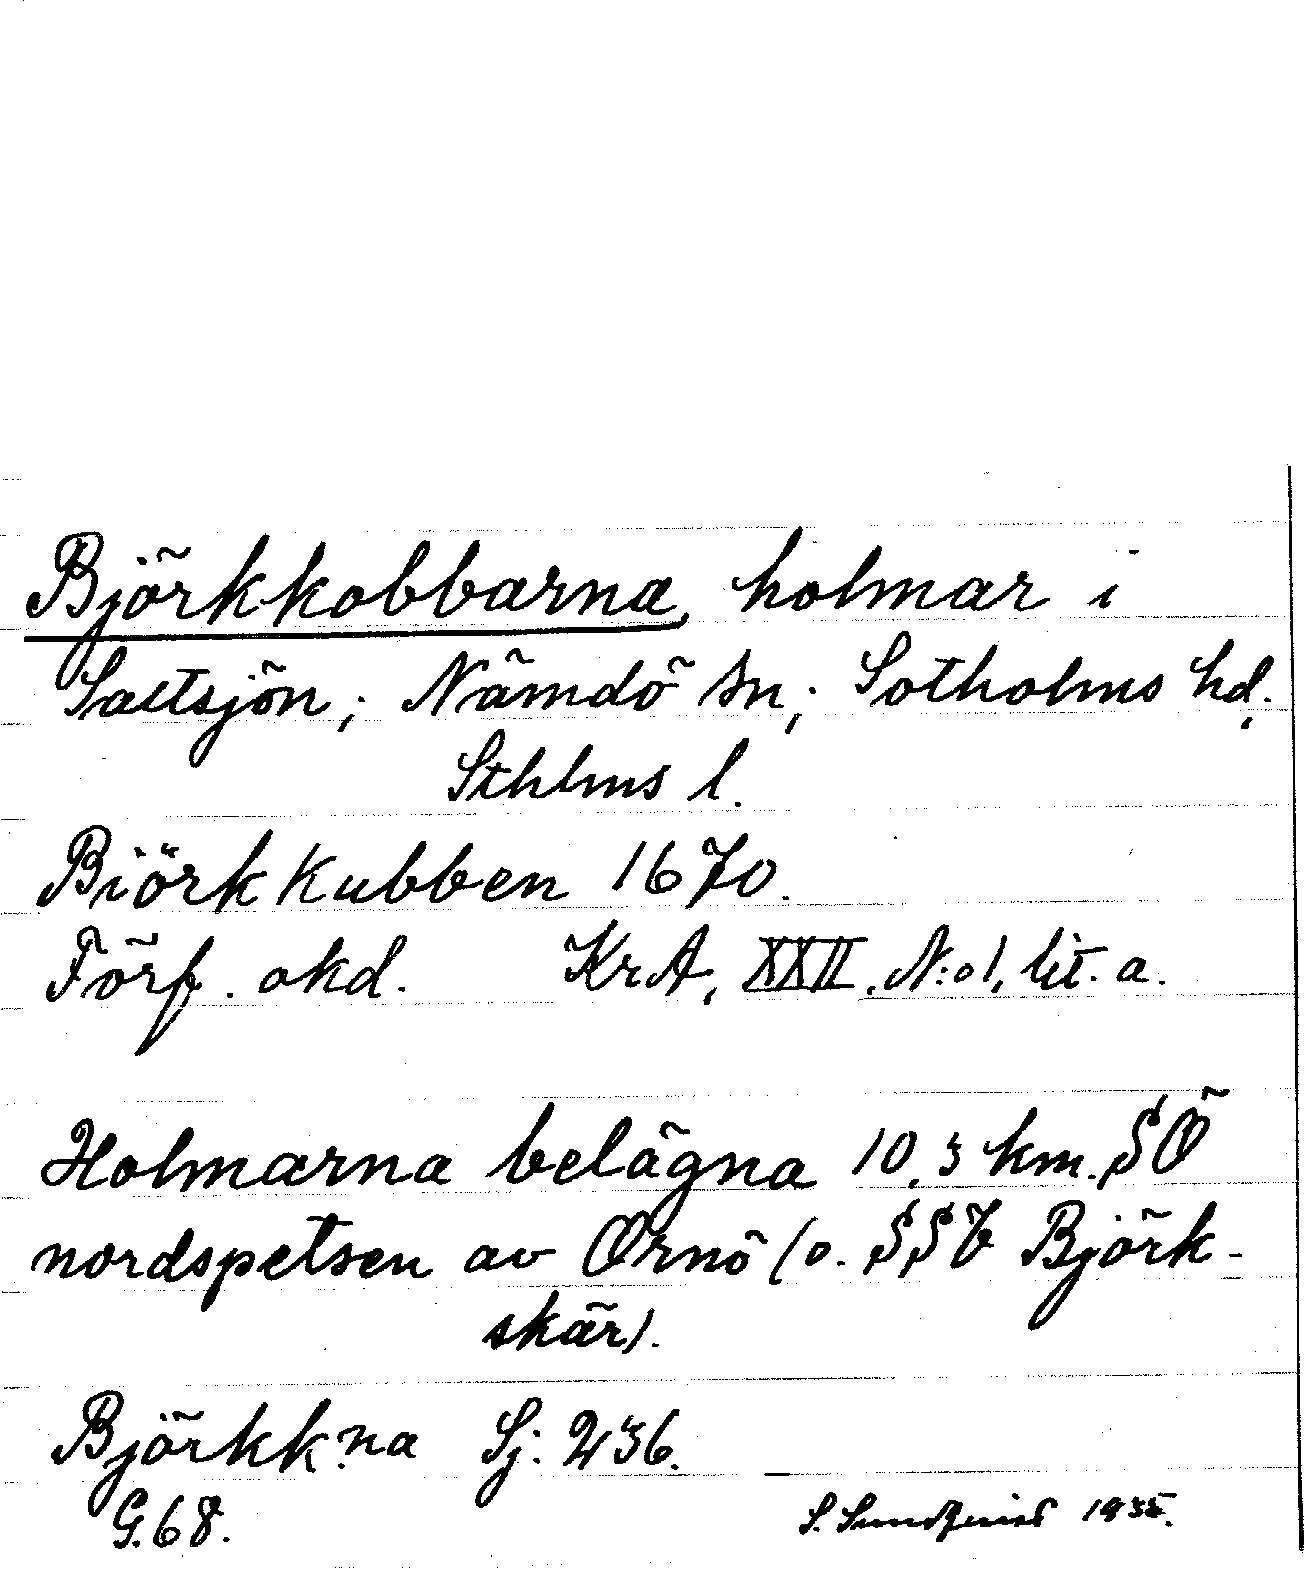 Björkkobbarna, holmar i
Saltsjön; Nämdö sn; Sotholms hd;
Sthlms l.
Biörk Kubben 1670.
Förf. okd. KrA, XXII, N:o 1, lit. a.
Holmarna belägna 10,3 km. SÖ
nordspetsen av Ornö (o. SSV Björk-
skär).
Björkk:na Sj: 236.
G.68. S. Sundquist 1935.